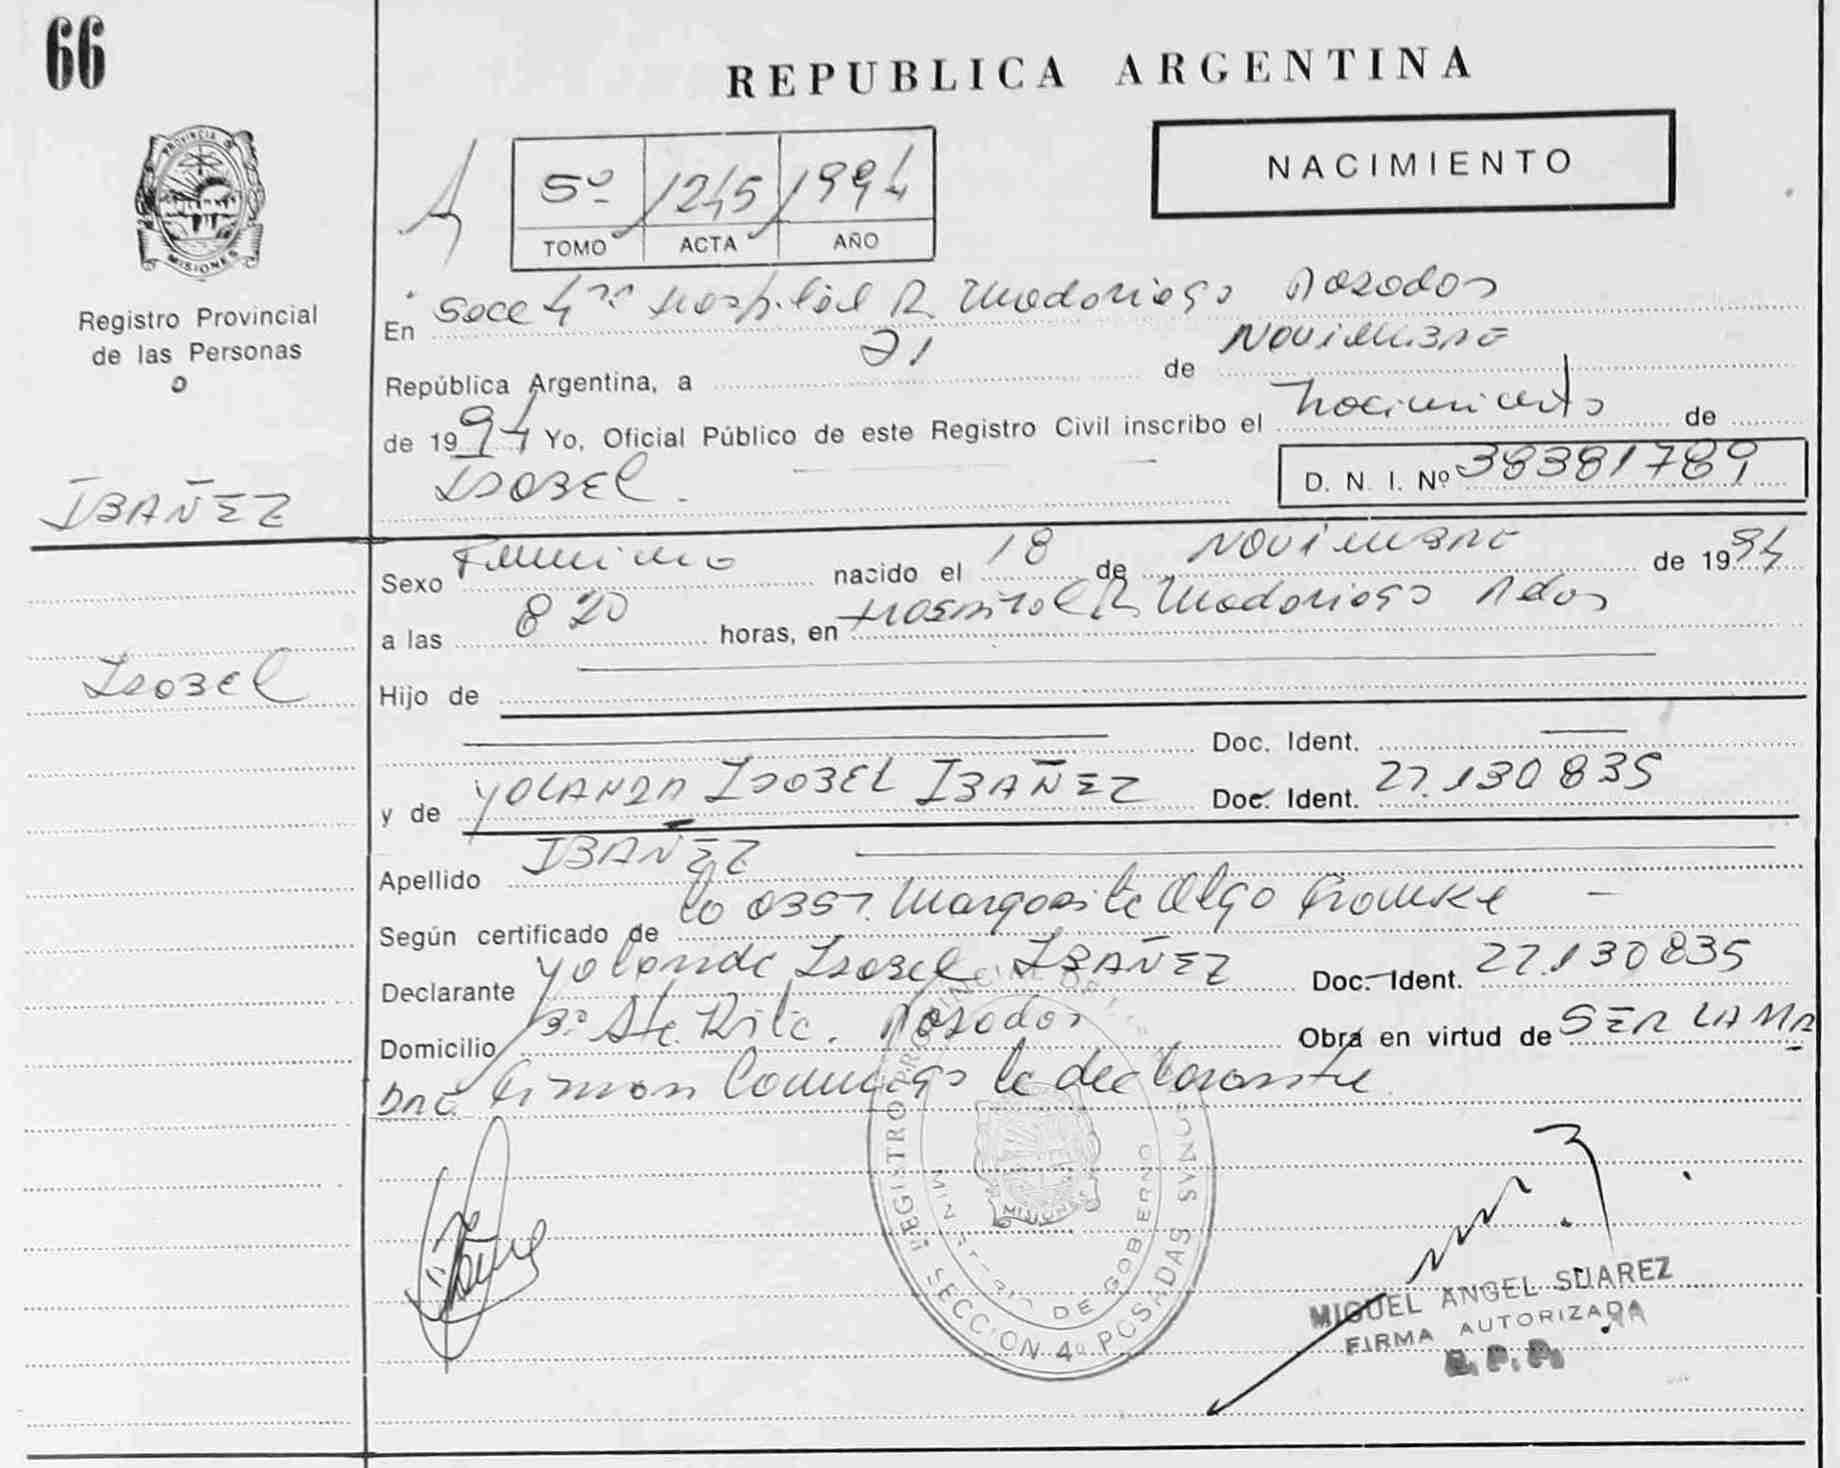 66
REPUBLICA ARGENTINA
NACIMIENTO
5º 1245 1994
TOMO ACTA AÑO
PROVINCIA DE MISIONES
Registro Provincial
de las Personas
En Secc 4ta Hospital R. Madariaga Posadas
República Argentina, a 21 de Noviembre
de 1994 Yo, Oficial Público de este Registro Civil inscribo el Nacimiento de
Isabel. D. N. I. Nº 38381789
IBAÑEZ
Sexo Femenino nacido el 18 de Noviembre de 1994
a las 8 20 horas, en Hospital R. Madariaga Pdas
Isabel
Hijo de
Doc. Ident.
y de YOLANDA ISABEL IBAÑEZ Doc. Ident. 22.130 835
Apellido IBAÑEZ
Según certificado de la Obst. Margarita Olga
Declarante Yolanda Isabel IBAÑEZ Doc. Ident. 22.130 835
Domicilio Bº Sta. Rita. Posadas Obra en virtud de SER LA MA
DRE. Firman Conmigo la declarante
REGISTRO PROVINCIAL DE LAS PERSONAS
MINISTERIO DE GOBIERNO
MISIONES
SECCION 4ª POSADAS
MIGUEL ANGEL SUAREZ
FIRMA AUTORIZADA
R. P. P.